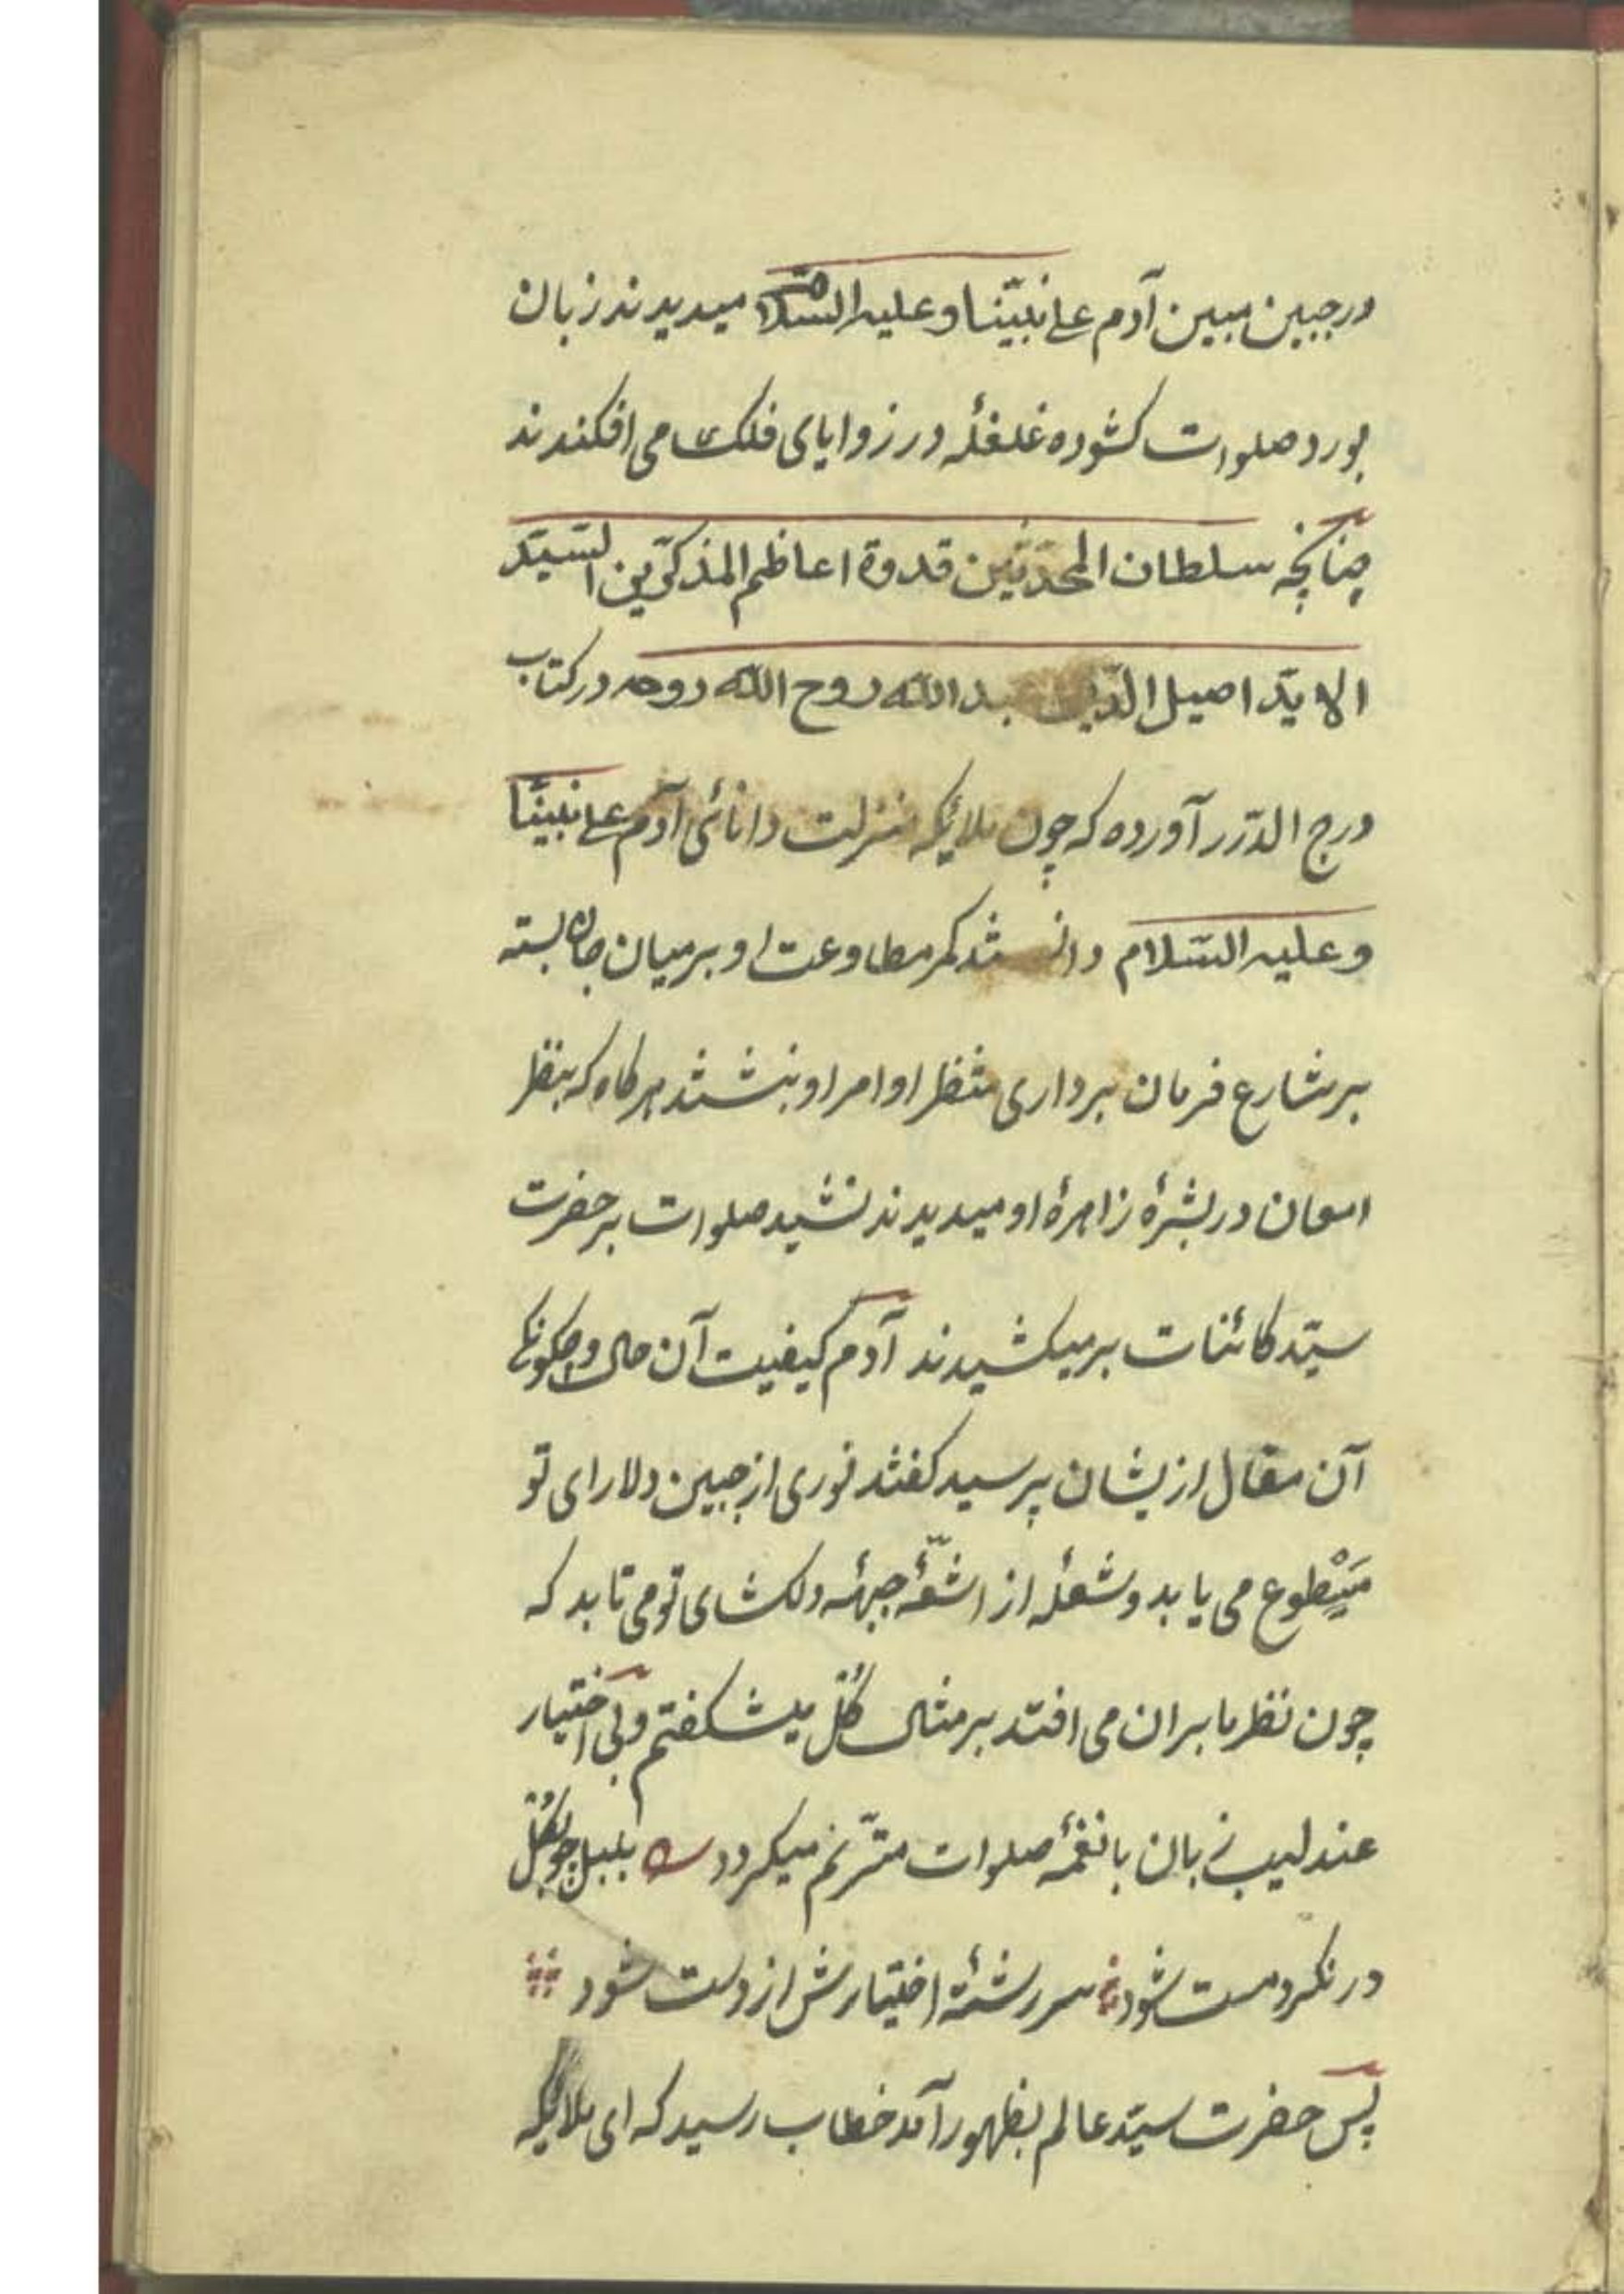 در جبین مبین آدم علی نبیّنا و علیه السّلام میدیدند زبان
بورد صلوات کشوده غلغلهٔ در زوایای فلک می افکندند
چنانچه سلطان المحدّثین قدوة اعاظم المذکّرین السّیّد
الایّد اصیل الدّین عبد الله روح الله روحه در کتاب
درج الدّرر آورده که چون ملائکه منزلت دانائی آدم علی نبینّا
و علیه السّلام دانستند کمر مطاوعت او بر میان جان بسته
بر شارع فرمان برداری منتظر اوامر او بنشستند هر کاه که بنظر
امعان در بشرهٔ زاهرهٔ او میدیدند نشید صلوات بر حضرت
سیّد کائنات بر میکشیدند آدم کیفیت آن حال و چکونکی
آن مقال ازیشان پرسید کفتند نوری از جبین دلارای تو
می‌طوع می یابد و شعلهٔ از اشعّهٔ جبههٔ دلکشای تو می تابد که
چون نظر ما بران می افتد بر مثال کُل میشکفتم و بی اختیار
عندلیب زبان با نغمهٔ صلوات مترّنم میکردد بلبل چو بکُل
در نکرد مست شود سر رشتهٔ اختیارش از دست شود
پس حضرت سیّد عالم بظهور آمد خطاب رسید که ای ملائکه